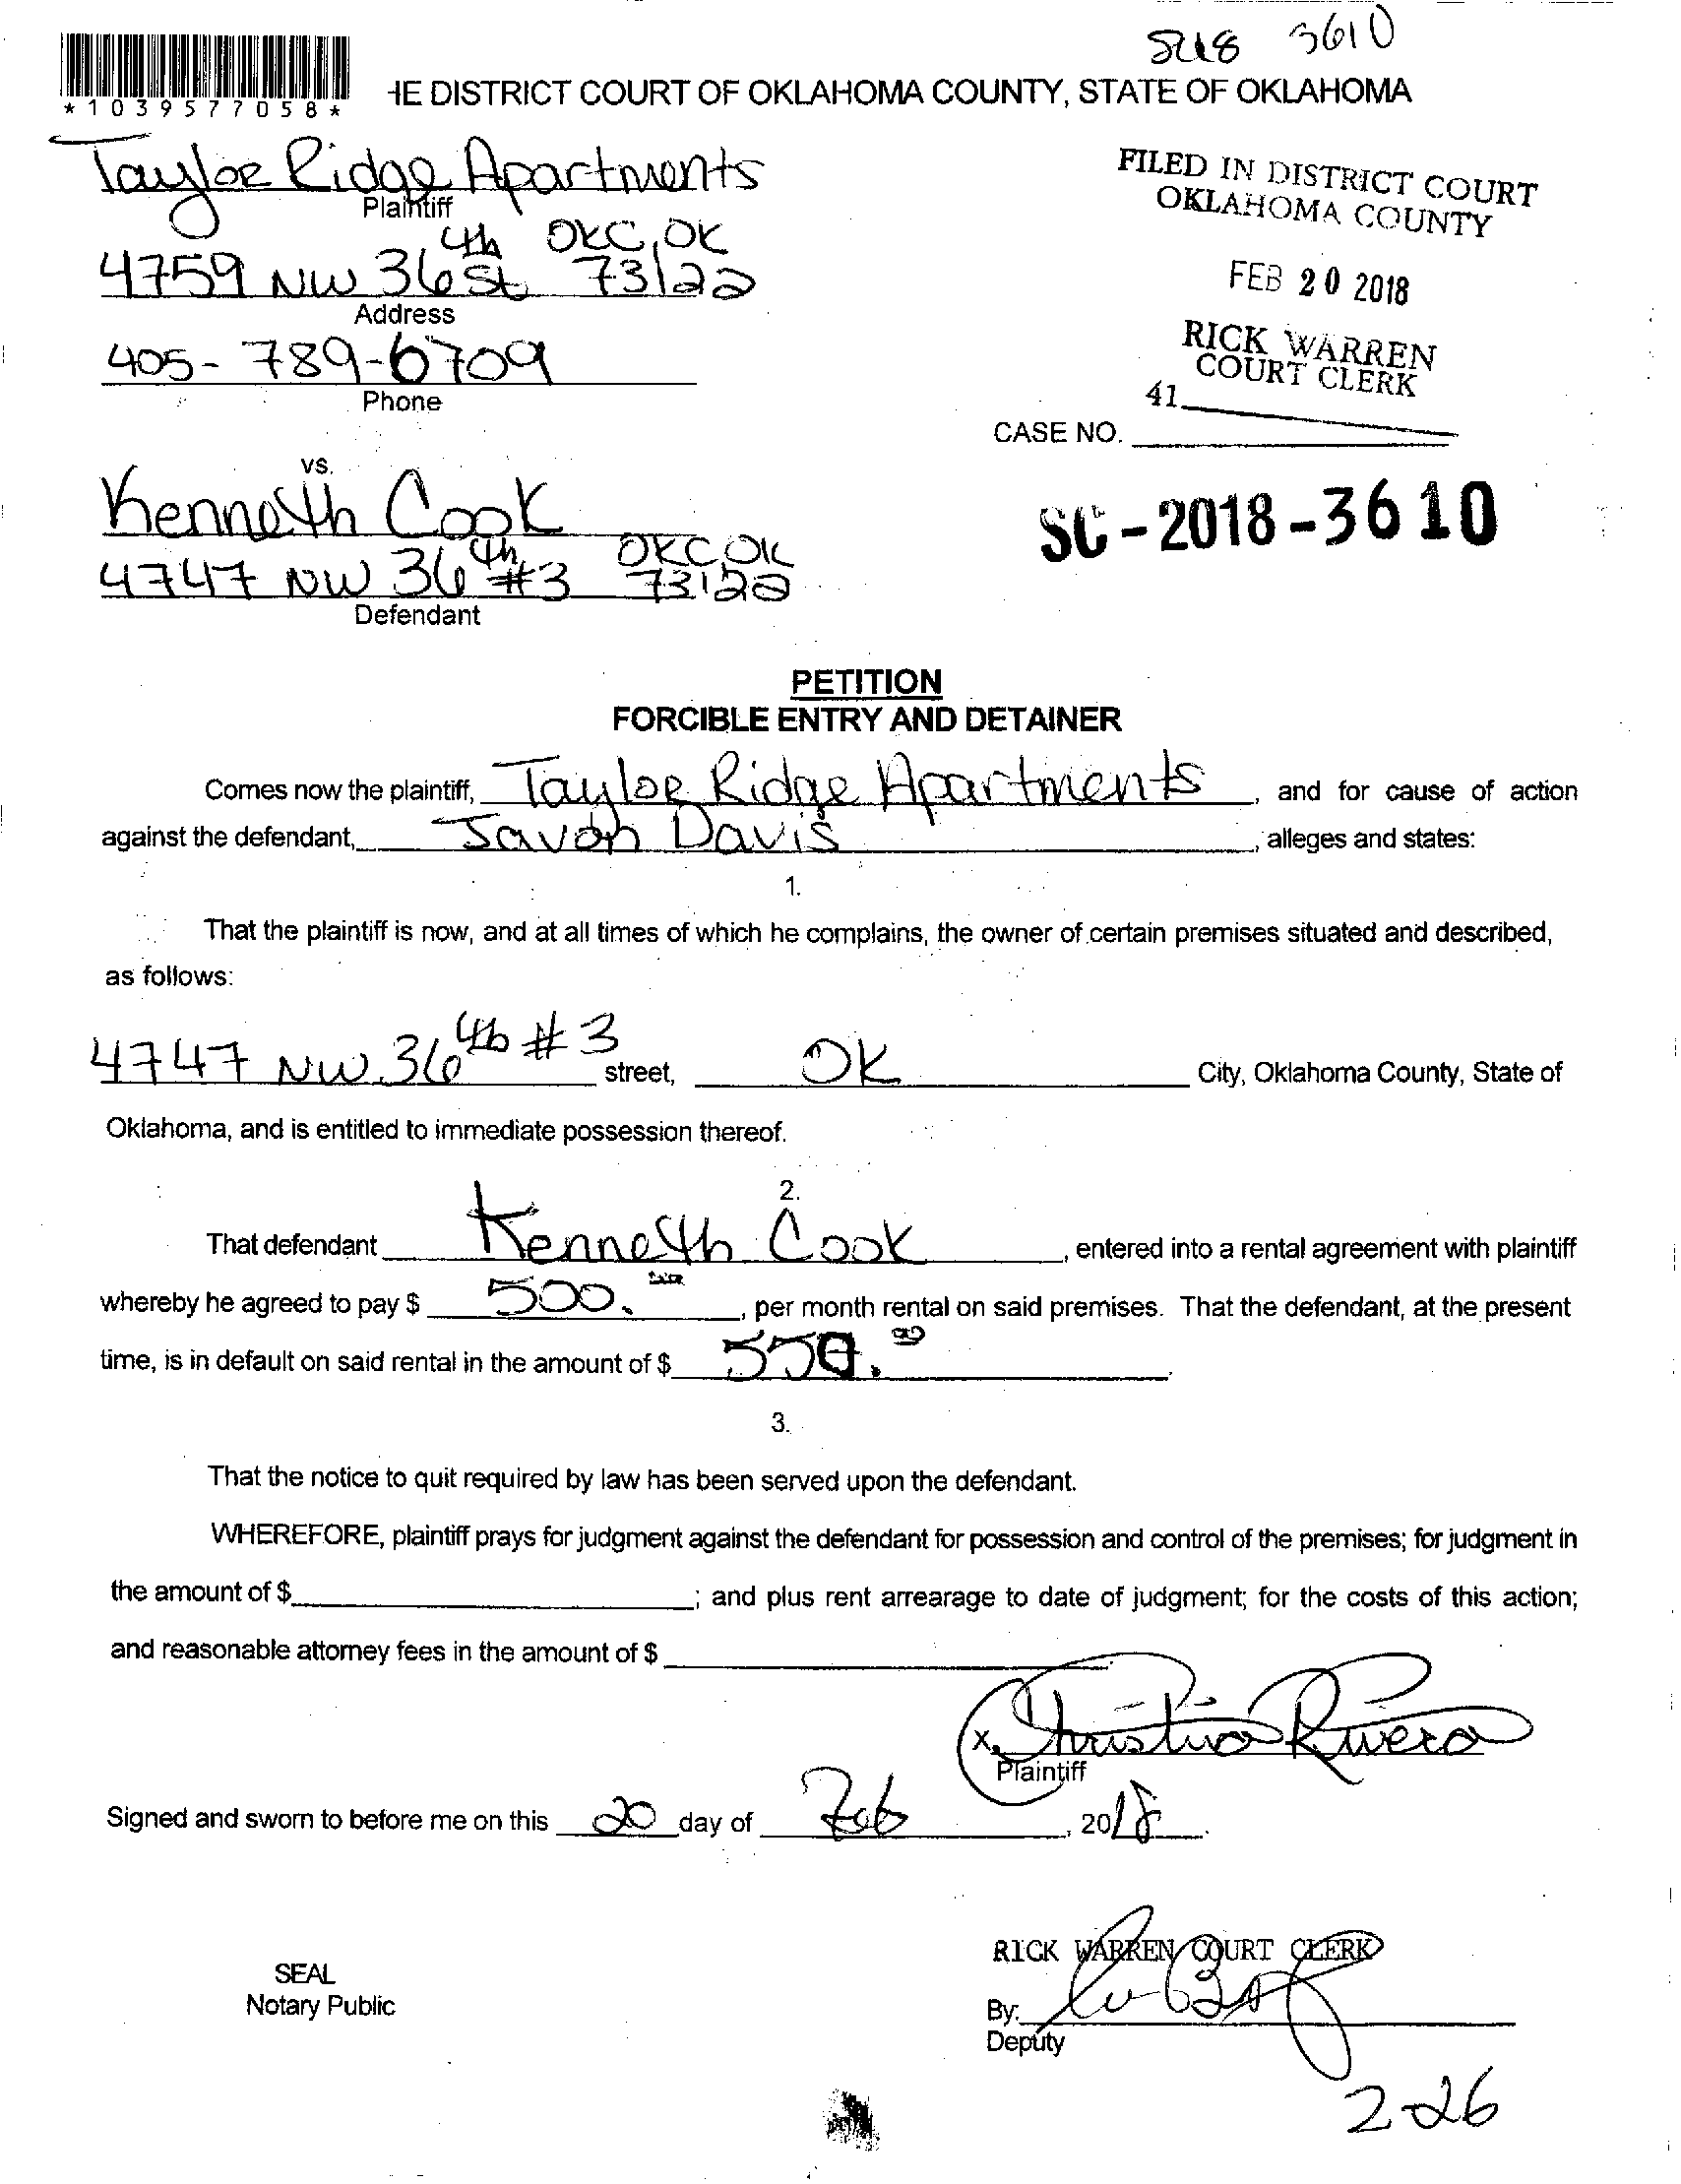 3610
*1039577058*
HE DISTRICT COURT OF OKLAHOMA COUNTY, STATE OF OKLAHOMA
Tayloe Ridge Apartments
Plaintiff
4759 NW 36th St OKC, OK 73122
Address
405-789-6709
Phone
FILED IN DISTRICT COURT
OKLAHOMA COUNTY
FEB 20 2018
RICK WARREN
COURT CLERK
41
CASE NO.
SC-2018-3610
vs.
Kenneth Cook
4747 NW 36th #3 OKC OK 73122
Defendant
PETITION
FORCIBLE ENTRY AND DETAINER
Comes now the plaintiff, Tayloe Ridge Apartments, and for cause of action
against the defendant, Javon Davis, alleges and states:
1.
That the plaintiff is now, and at all times of which he complains, the owner of certain premises situated and described,
as follows:
4747 NW 36th #3 street, OK City, Oklahoma County, State of
Oklahoma, and is entitled to immediate possession thereof.
2.
That defendant Kenneth Cook, entered into a rental agreement with plaintiff
whereby he agreed to pay $ 500., per month rental on said premises. That the defendant, at the present
time, is in default on said rental in the amount of $ 550.00
3.
That the notice to quit required by law has been served upon the defendant.
WHEREFORE, plaintiff prays for judgment against the defendant for possession and control of the premises; for judgment in
the amount of $ ; and plus rent arrearage to date of judgment; for the costs of this action;
and reasonable attorney fees in the amount of $
x Christina Rivera
Plaintiff
Signed and sworn to before me on this 20 day of Feb, 2018.
SEAL
Notary Public
RICK WARREN COURT CLERK
By:
Deputy
2-26